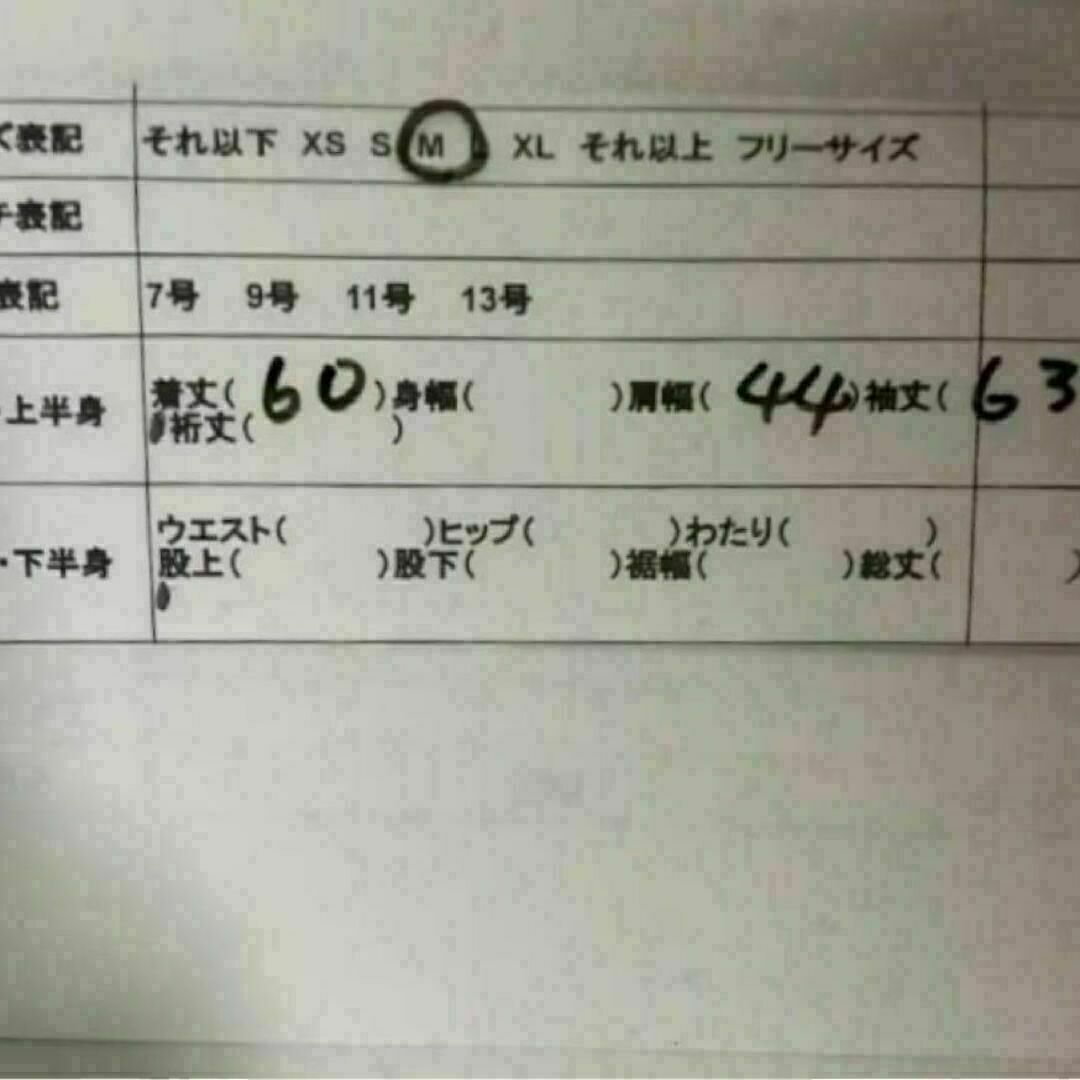 ズ表記 それ以下 XS S M L XL それ以上 フリーサイズ
チ表記
表記 7号 9号 11号 13号
・上半身 着丈( 60 )身幅( )肩幅( 44 )袖丈( 63
裄丈( )
ウエスト( )ヒップ( )わたり( )
・下半身 股上( )股下( )裾幅( )総丈( )